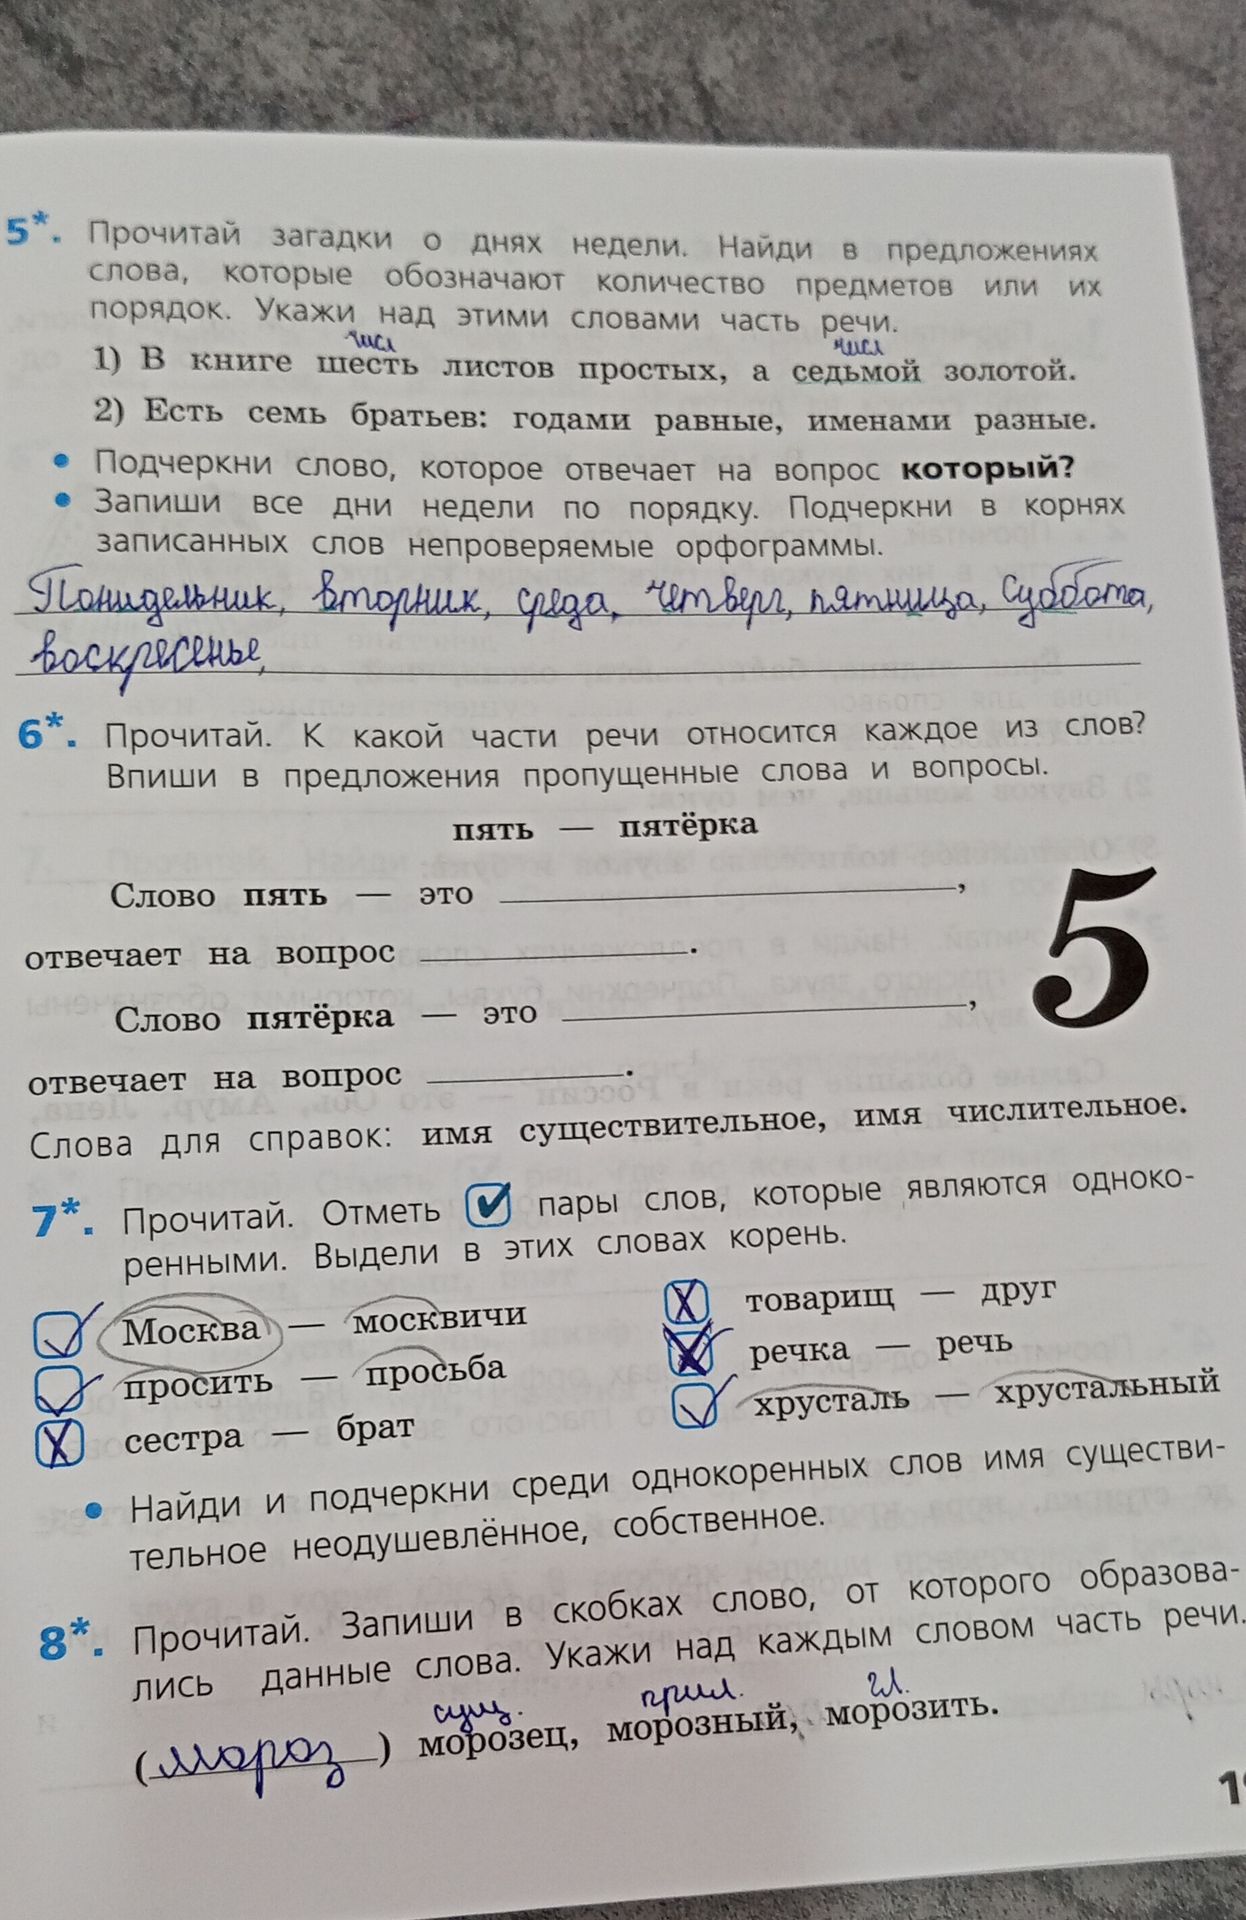 5*. Прочитай загадки о днях недели. Найди в предложениях
слова, которые обозначают количество предметов или их
порядок. Укажи над этими словами часть речи.
числ числ
1) В книге шесть листов простых, а седьмой золотой.
2) Есть семь братьев: годами равные, именами разные.
• Подчеркни слово, которое отвечает на вопрос который?
• Запиши все дни недели по порядку. Подчеркни в корнях
записанных слов непроверяемые орфограммы.
Понидельник, вторник, среда, четверг, пятница, Суббота,
воскресенье,
6*. Прочитай. К какой части речи относится каждое из слов?
Впиши в предложения пропущенные слова и вопросы.
пять — пятёрка
Слово пять — это ,
отвечает на вопрос .
5
Слово пятёрка — это ,
отвечает на вопрос .
Слова для справок: имя существительное, имя числительное.
7*. Прочитай. Отметь ✓ пары слов, которые являются одноко-
ренными. Выдели в этих словах корень.
Москва — москвичи
просить — просьба
сестра — брат
товарищ — друг
речка — речь
хрусталь — хрустальный
• Найди и подчеркни среди однокоренных слов имя существи-
тельное неодушевлённое, собственное.
8*. Прочитай. Запиши в скобках слово, от которого образова-
лись данные слова. Укажи над каждым словом часть речи.
сущ. прил. гл.
(мороз) морозец, морозный, морозить.